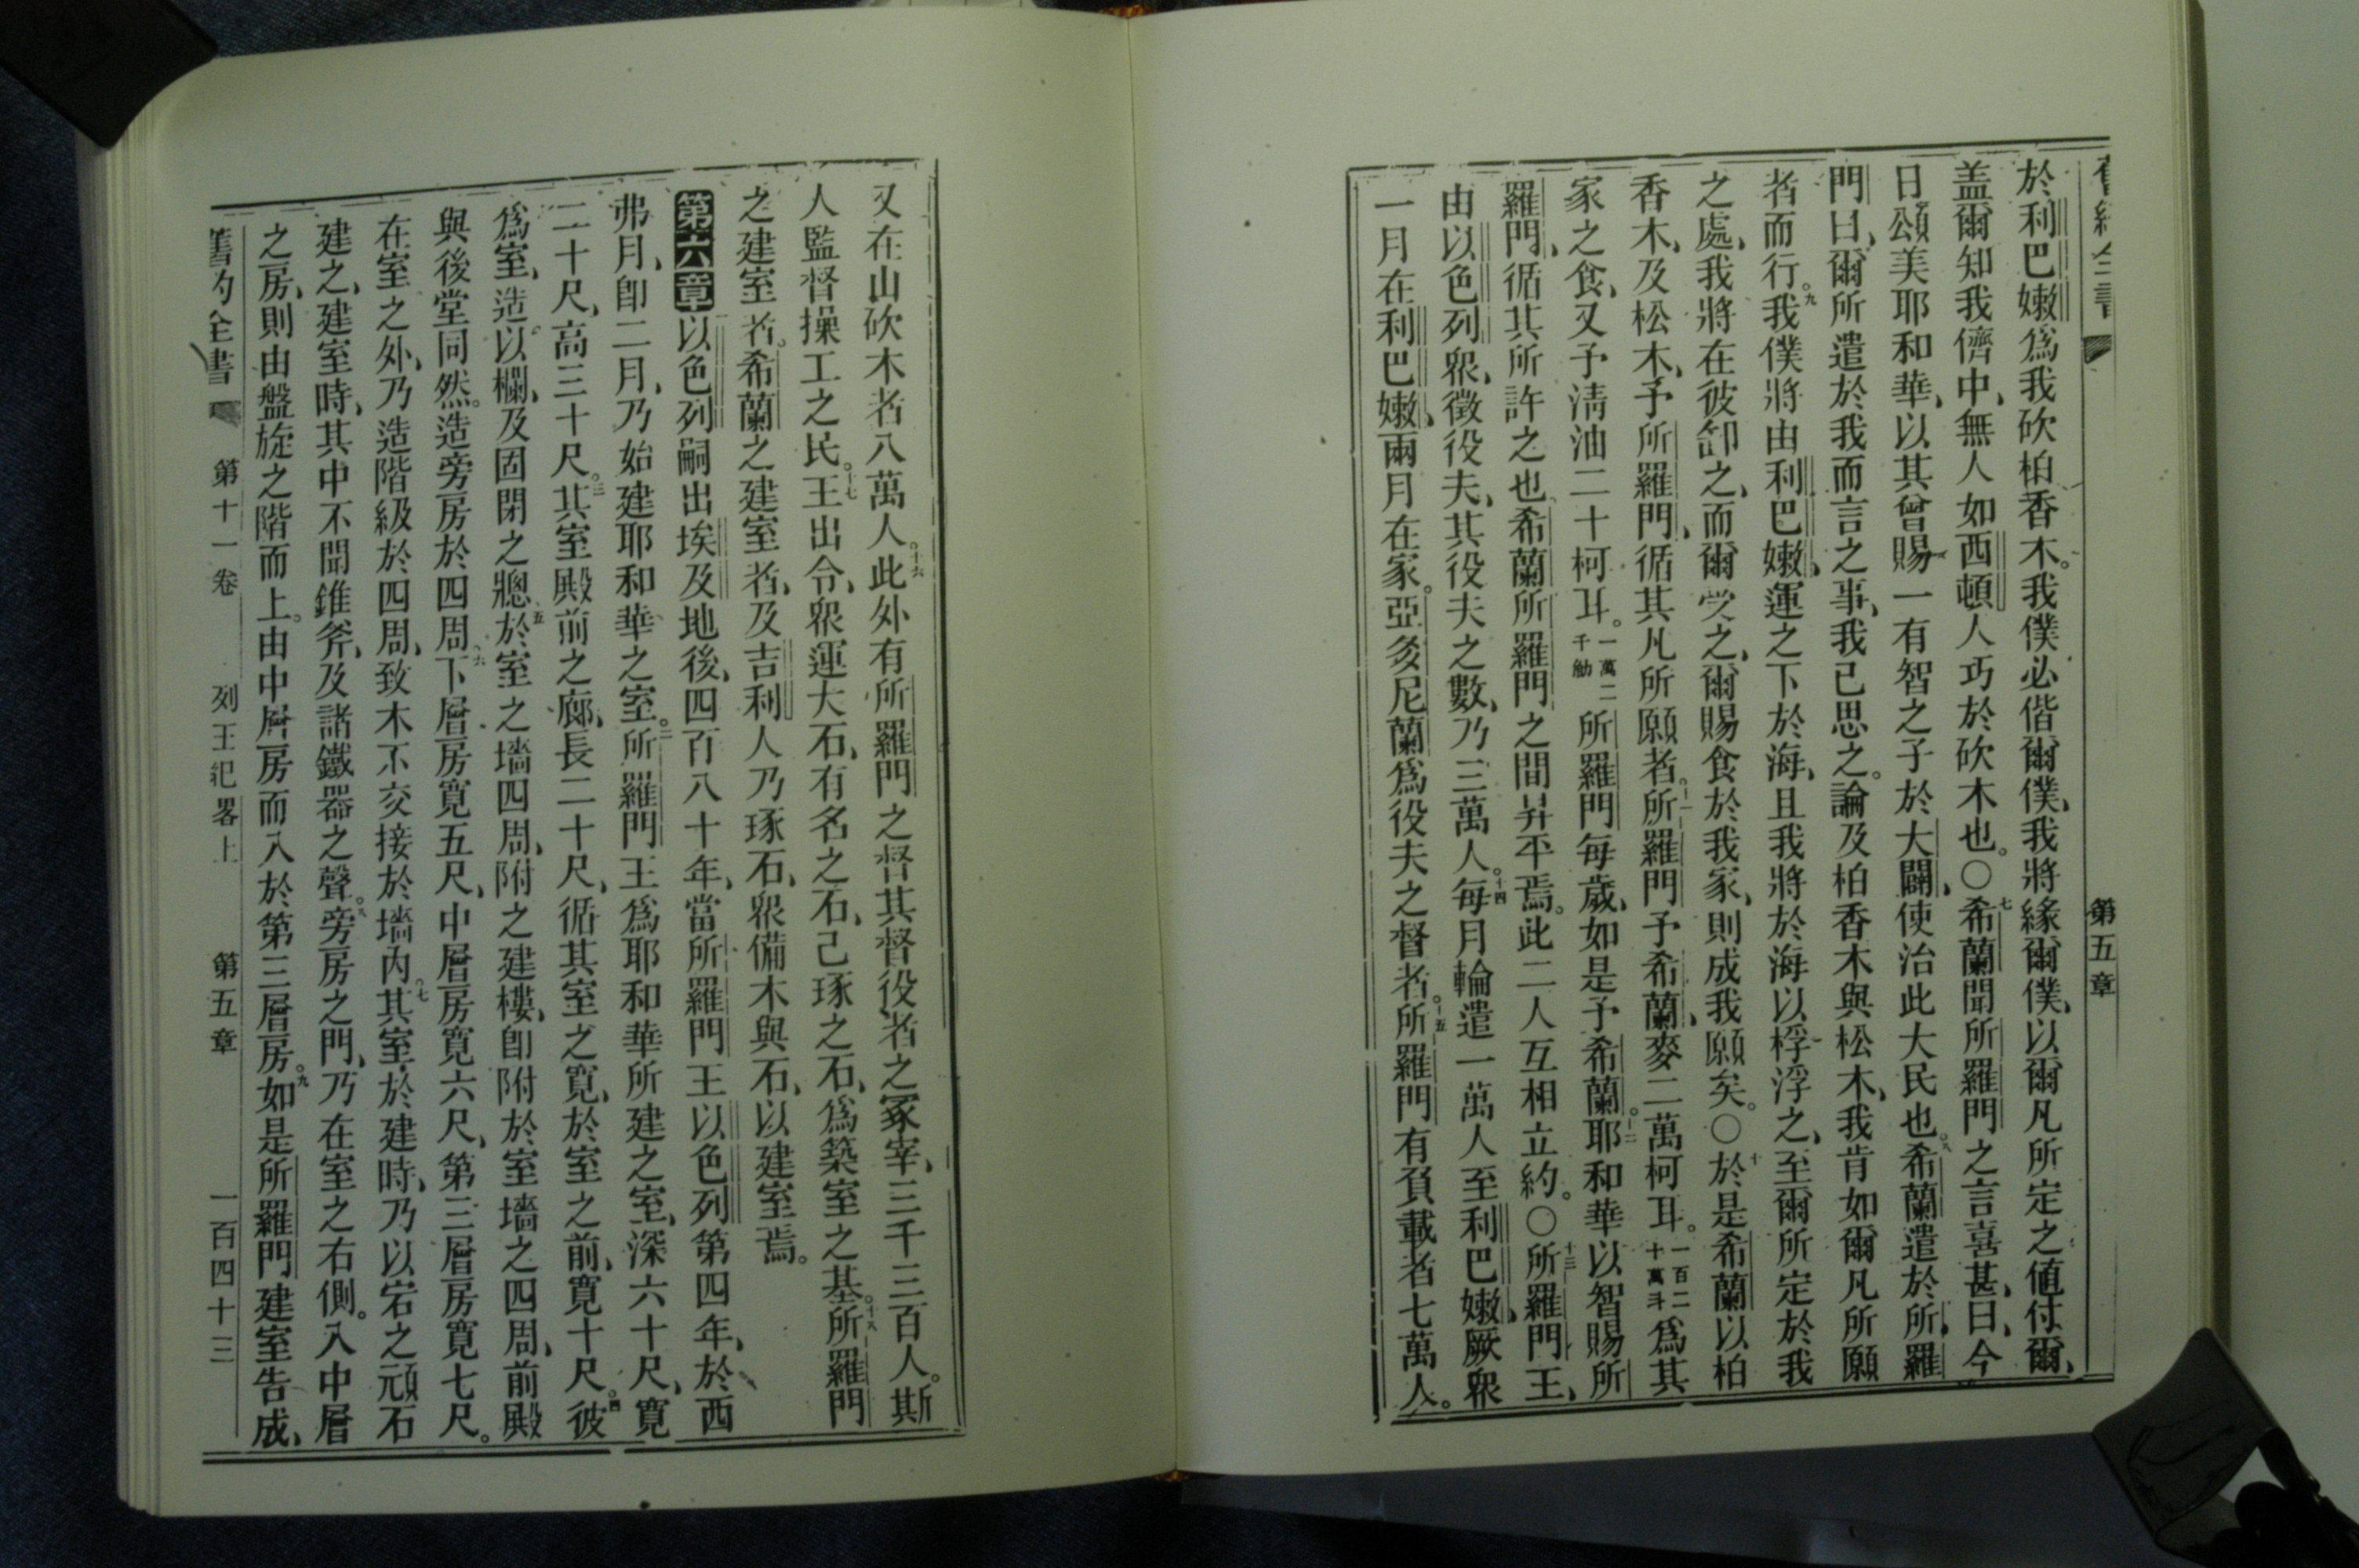 第五章
於利巴嫩爲我砍柏香木。我僕必偕爾僕、我將緣爾僕、以爾凡所定之値付爾、
盖爾知我儕中、無人如西頓人巧於砍木也。○七希蘭聞所羅門之言喜甚、曰、今
日頌美耶和華、以其曾賜一有智之子於大闢、使治此大民也。八希蘭遣於所羅
門曰、爾所遣於我而言之事、我已思之。論及柏香木與松木、我肯如爾凡所願
者而行。九我僕將由利巴嫩、運之下於海、且我將於海以桴浮之、至爾所定於我
之處、我將在彼卸之、而爾受之、爾賜食於我家、則成我願矣。○十於是希蘭以柏
香木、及松木、予所羅門、循其凡所願者。十一所羅門予希蘭、麥二萬柯耳。一百二十萬斗爲其
家之食、又予淸油二十柯耳。一萬二千觔所羅門每歲、如是予希蘭。十二耶和華以智賜所
羅門、循其所許之也希蘭所羅門之間昇平焉。此二人互相立約。○十三所羅門王、
由以色列衆、徵役夫、其役夫之數、乃三萬人。十四每月輪遣一萬人至利巴嫩、厥衆
一月在利巴嫩、兩月在家。亞多尼蘭爲役夫之督者。十五所羅門有負載者七萬人。
又在山砍木者八萬人。十六此外有所羅門之督其督役者之冢宰、三千三百人。斯
人監督操工之民。十七王出令、衆運大石、有名之石、已琢之石、爲築室之基。十八所羅門
之建室者。希蘭之建室者、及吉利人乃琢石、衆備木與石、以建室焉。
第六章以色列嗣出埃及地後、四百八十年、當所羅門王以色列第四年、於西
弗月、卽二月、乃始建耶和華之室。二所羅門王爲耶和華所建之室、深六十尺、寬
二十尺、高三十尺。三其室殿前之廊、長二十尺、循其室之寬、於室之前、寬十尺。四彼
爲室、造以欄、及固閉之牕。五於室之墻四周、附之建樓、卽附於室墻之四周、前殿
與後堂同然。造旁房於四周。六下層房寬五尺、中層房寬六尺、第三層房寬七尺。
在室之外、乃造階級於四周、致木不交接於墻內。七其室於建時、乃以宕之頑石
建之、建室時、其中不聞錐斧、及諸鐵器之聲。八旁房之門、乃在室之右側。入中層
之房、則由盤旋之階而上。由中層房而入於第三層房。九如是所羅門建室告成、
舊約全書 第十一卷 列王紀畧上 第五章 一百四十三